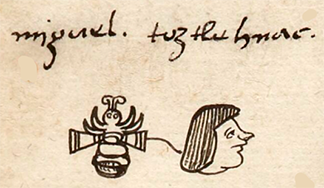 miguel. toztlehuac.